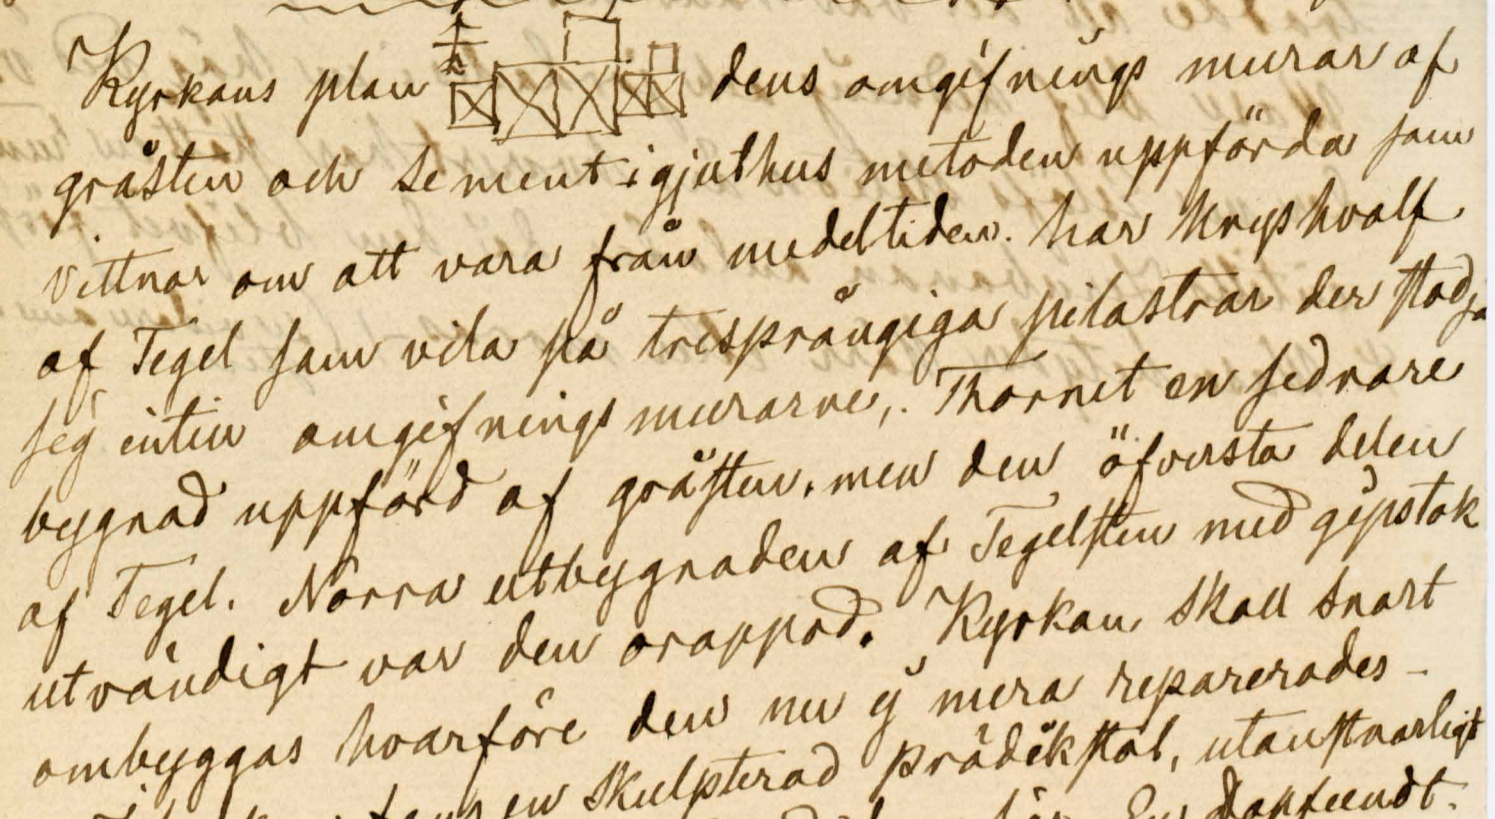 Kyrkans plan dens omgifnings murar af
gråsten och sement i gjuthus metoden uppförda som
vittnar om att vara från medeltiden. har Kryshvalf
af Tegel som vila på tresprångiga pilastrar der stödja
sig intin omgifnings murarne,. Thornet en sednare
bygnad uppförd af gråsten. men den öfversta delen
af Tegel. Norra utbygnaden af Tegelsten med gipstak
utvändigt var den orappad. Kyrkan skall snart
ombyggas hvarföre den nu ej mera reparerades -
en Skulpterad Prädikstol,
Dopfundt.